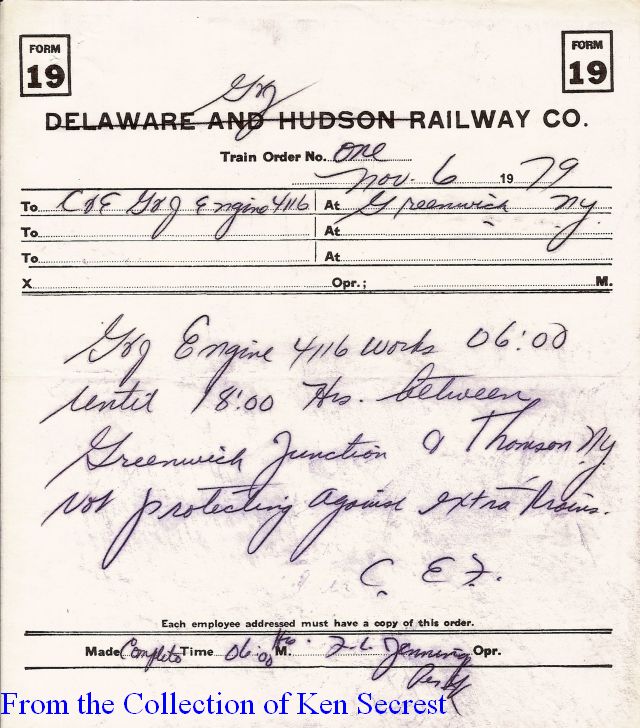 FORM 19
FORM 19
G&J
DELAWARE AND HUDSON RAILWAY CO.
Train Order No. One
Nov. 6 1979
To C&E G&J Engine 4116 At Greenwich NY
To At
To At
X Opr.; M.
G&J Engine 4116 works 06:00
until 18:00 Hrs. between
Greenwich Junction & Thomson NY
not protecting against extra trains.
C. E. F.
Each employee addressed must have a copy of this order.
Made Complete Time 06:00 Hrs. M. Jennings Opr.
From the Collection of Ken Secrest